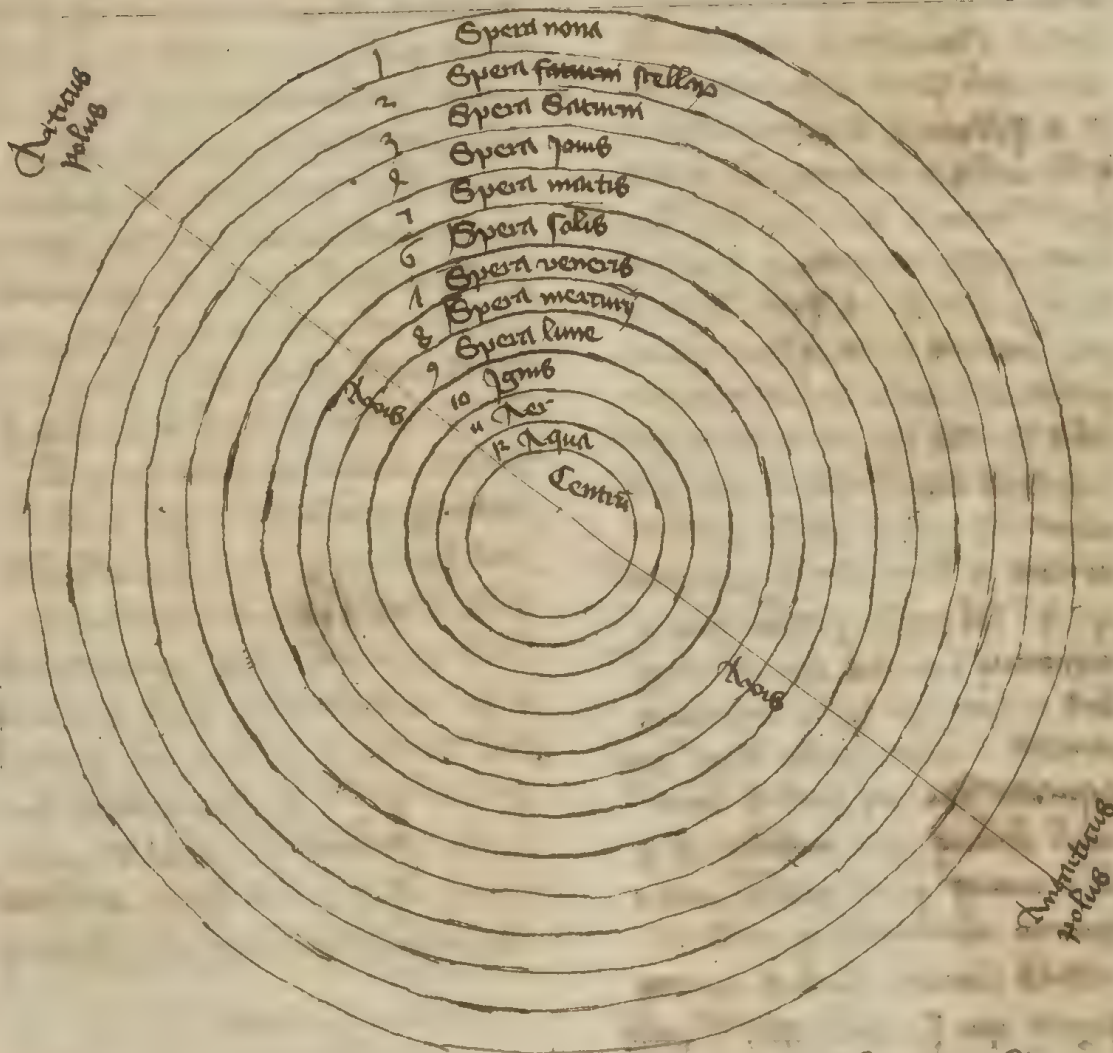 Spera nona
1
Spera fixarum stellarum
2
Spera Saturni
3
Spera Jovis
4
Spera martis
5
Spera solis
6
Spera veneris
7
Spera mercurij
8
Spera lune
9
Ignis
10
Aer
11
Aqua
12
Centrum
Articus
polus
Axis
Axis
Antarticus
polus